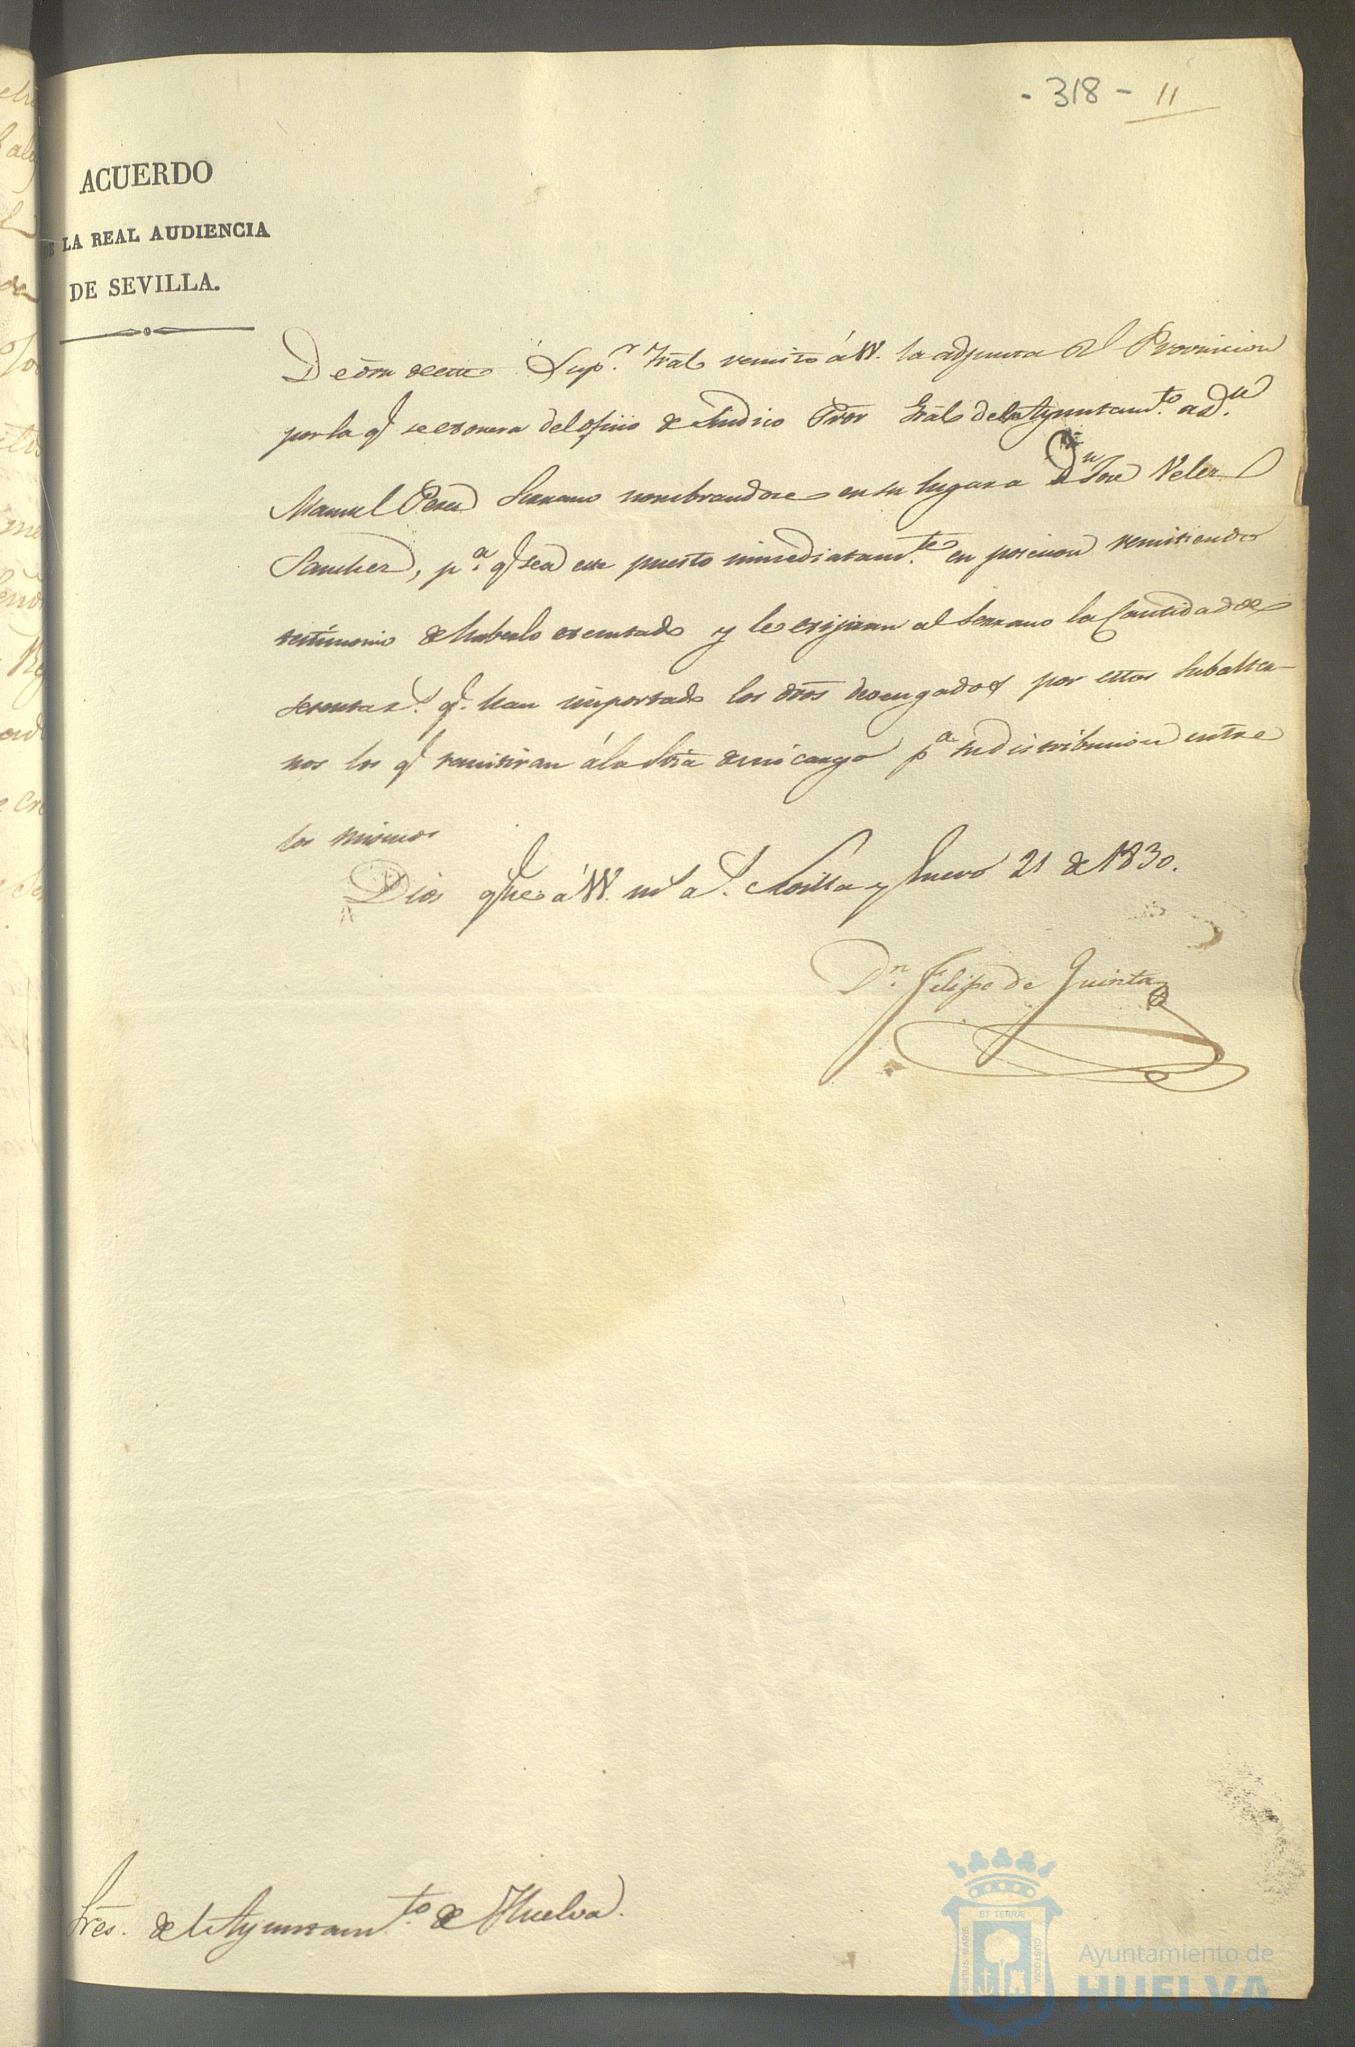 - 318 - 11
ACUERDO
DE LA REAL AUDIENCIA
DE SEVILLA.
De orn de este Sup.r Tral remito á VV. la adjunta Rl Provicion
por la q.e se exonera del oficio de Sindico Pror Gral del Ayuntam.to a D.n
Manuel Perez Serrano nombrandose en su lugar a D.n Jose Velez
Sanchez, p.a q.e sea este puesto inmediatam.te en posicion remitiendo
testimonio de haberlo executado y le exijiran al Serrano la Cantidad de
setenta r.s q.e han importado los dros devengados por estos Subalter-
nos los q.e remitiran á la Stria de mi cargo p.a su distribucion entre
los mismos
Dios gue á VV. m.s a.s Sevilla y Enero 21 de 1830.
D.n Felipe de Quinta
Sres. del Ayuntam.to de Huelva.
PORTUS MARIS
ET TERRÆ
CUSTODIA
Ayuntamiento de
HUELVA